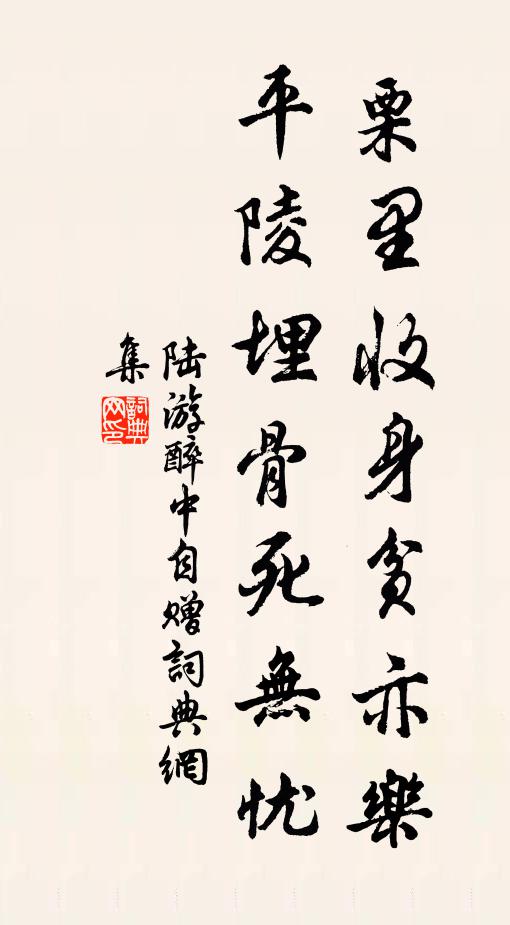 栗里收身貧亦樂
平陵埋骨死無忧
陆游醉中自赠詞典網
集
詞典
网印